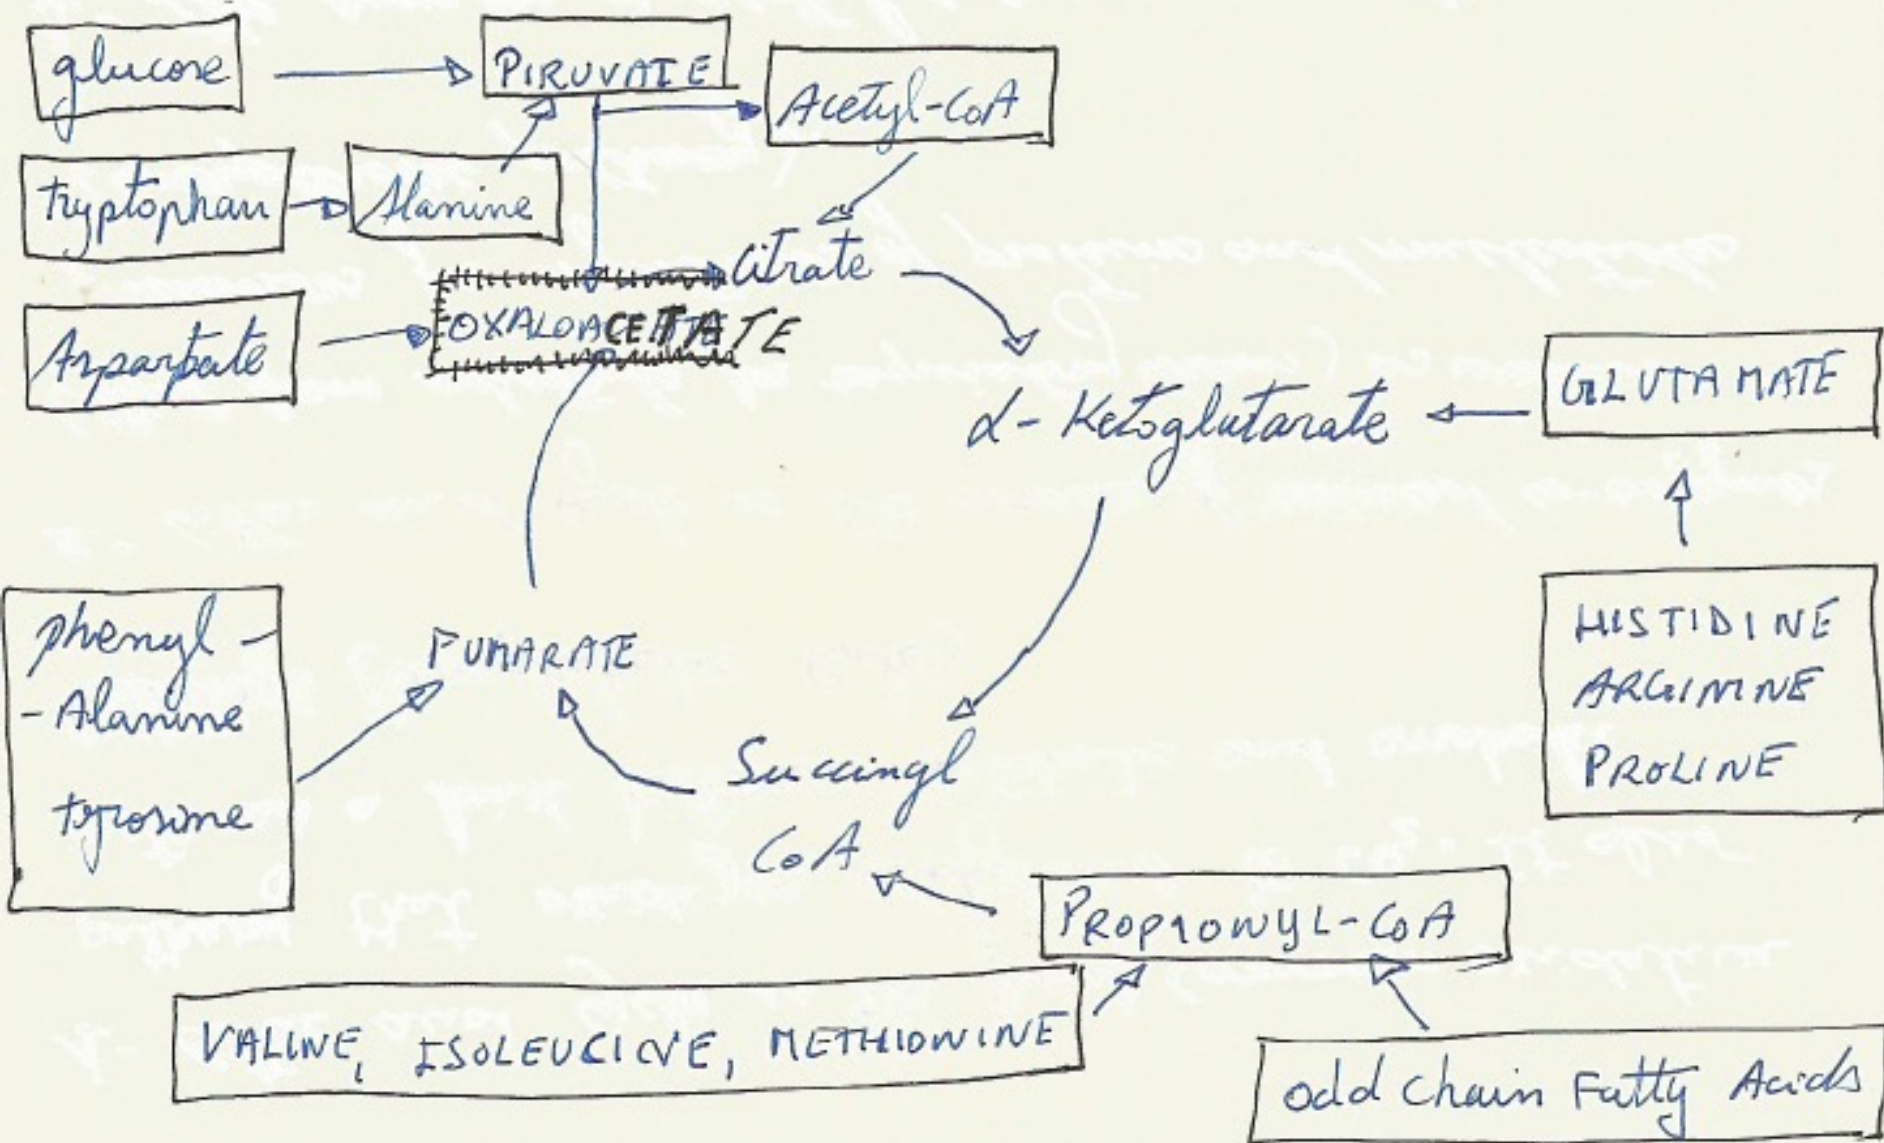 glucose
PIRUVATE
Acetyl-CoA
tryptophan
Alanine
Citrate
Aspartate
OXALOACETATE
α- Ketoglutarate
GLUTAMATE
phenyl-
-Alanine
tyrosine
FUMARATE
HISTIDINE
ARGININE
PROLINE
Succinyl
CoA
PROPIONYL-CoA
VALINE, ISOLEUCINE, METHIONINE
odd Chain Fatty Acids